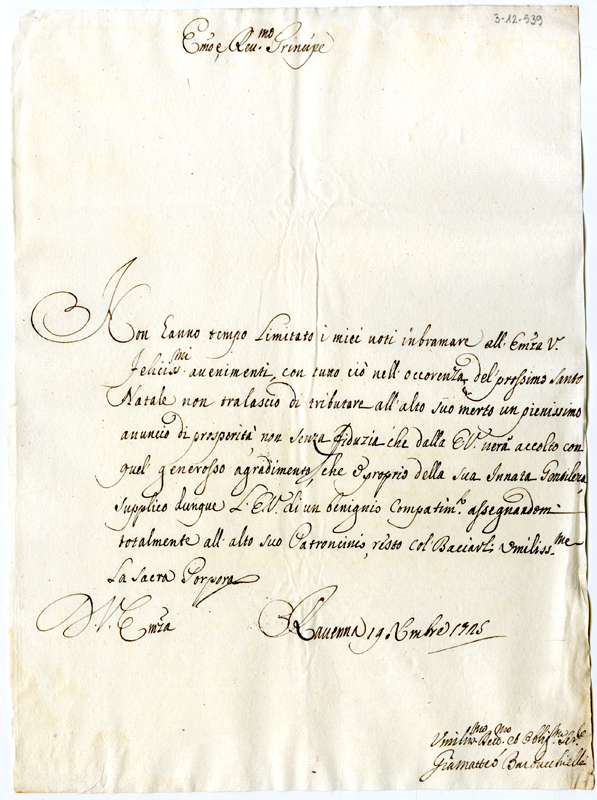 3-12-539
Emo e Reu.mo Prinúpe
Non hanno tempo Limitato i miei uoti inbramare all' Emza V.
feliciss.mi auenimenti, con tuto ciò nell' occorenza del prossimo Santo
Natale non tralascio di tributare all' alto suo merto un pienissimo
anuncio di prosperità non senza fiduzia che dalla E.V. uerà accolto con
quel generosso agradimento, che è proprio della sua Innata Gentileza,
supplico dunque L. E.V. di un benignio Compatim.to assegnandomi
totalmente all' alto suo Patroncinio, resto col Baciarle Vmiliss.me
La Sacra Porpora
D. V. Emza
Rauenna 19 Nmbre 1725
Vmilis.mo Deuo.mo et Oblig.mo Ser.e
Giamatteo